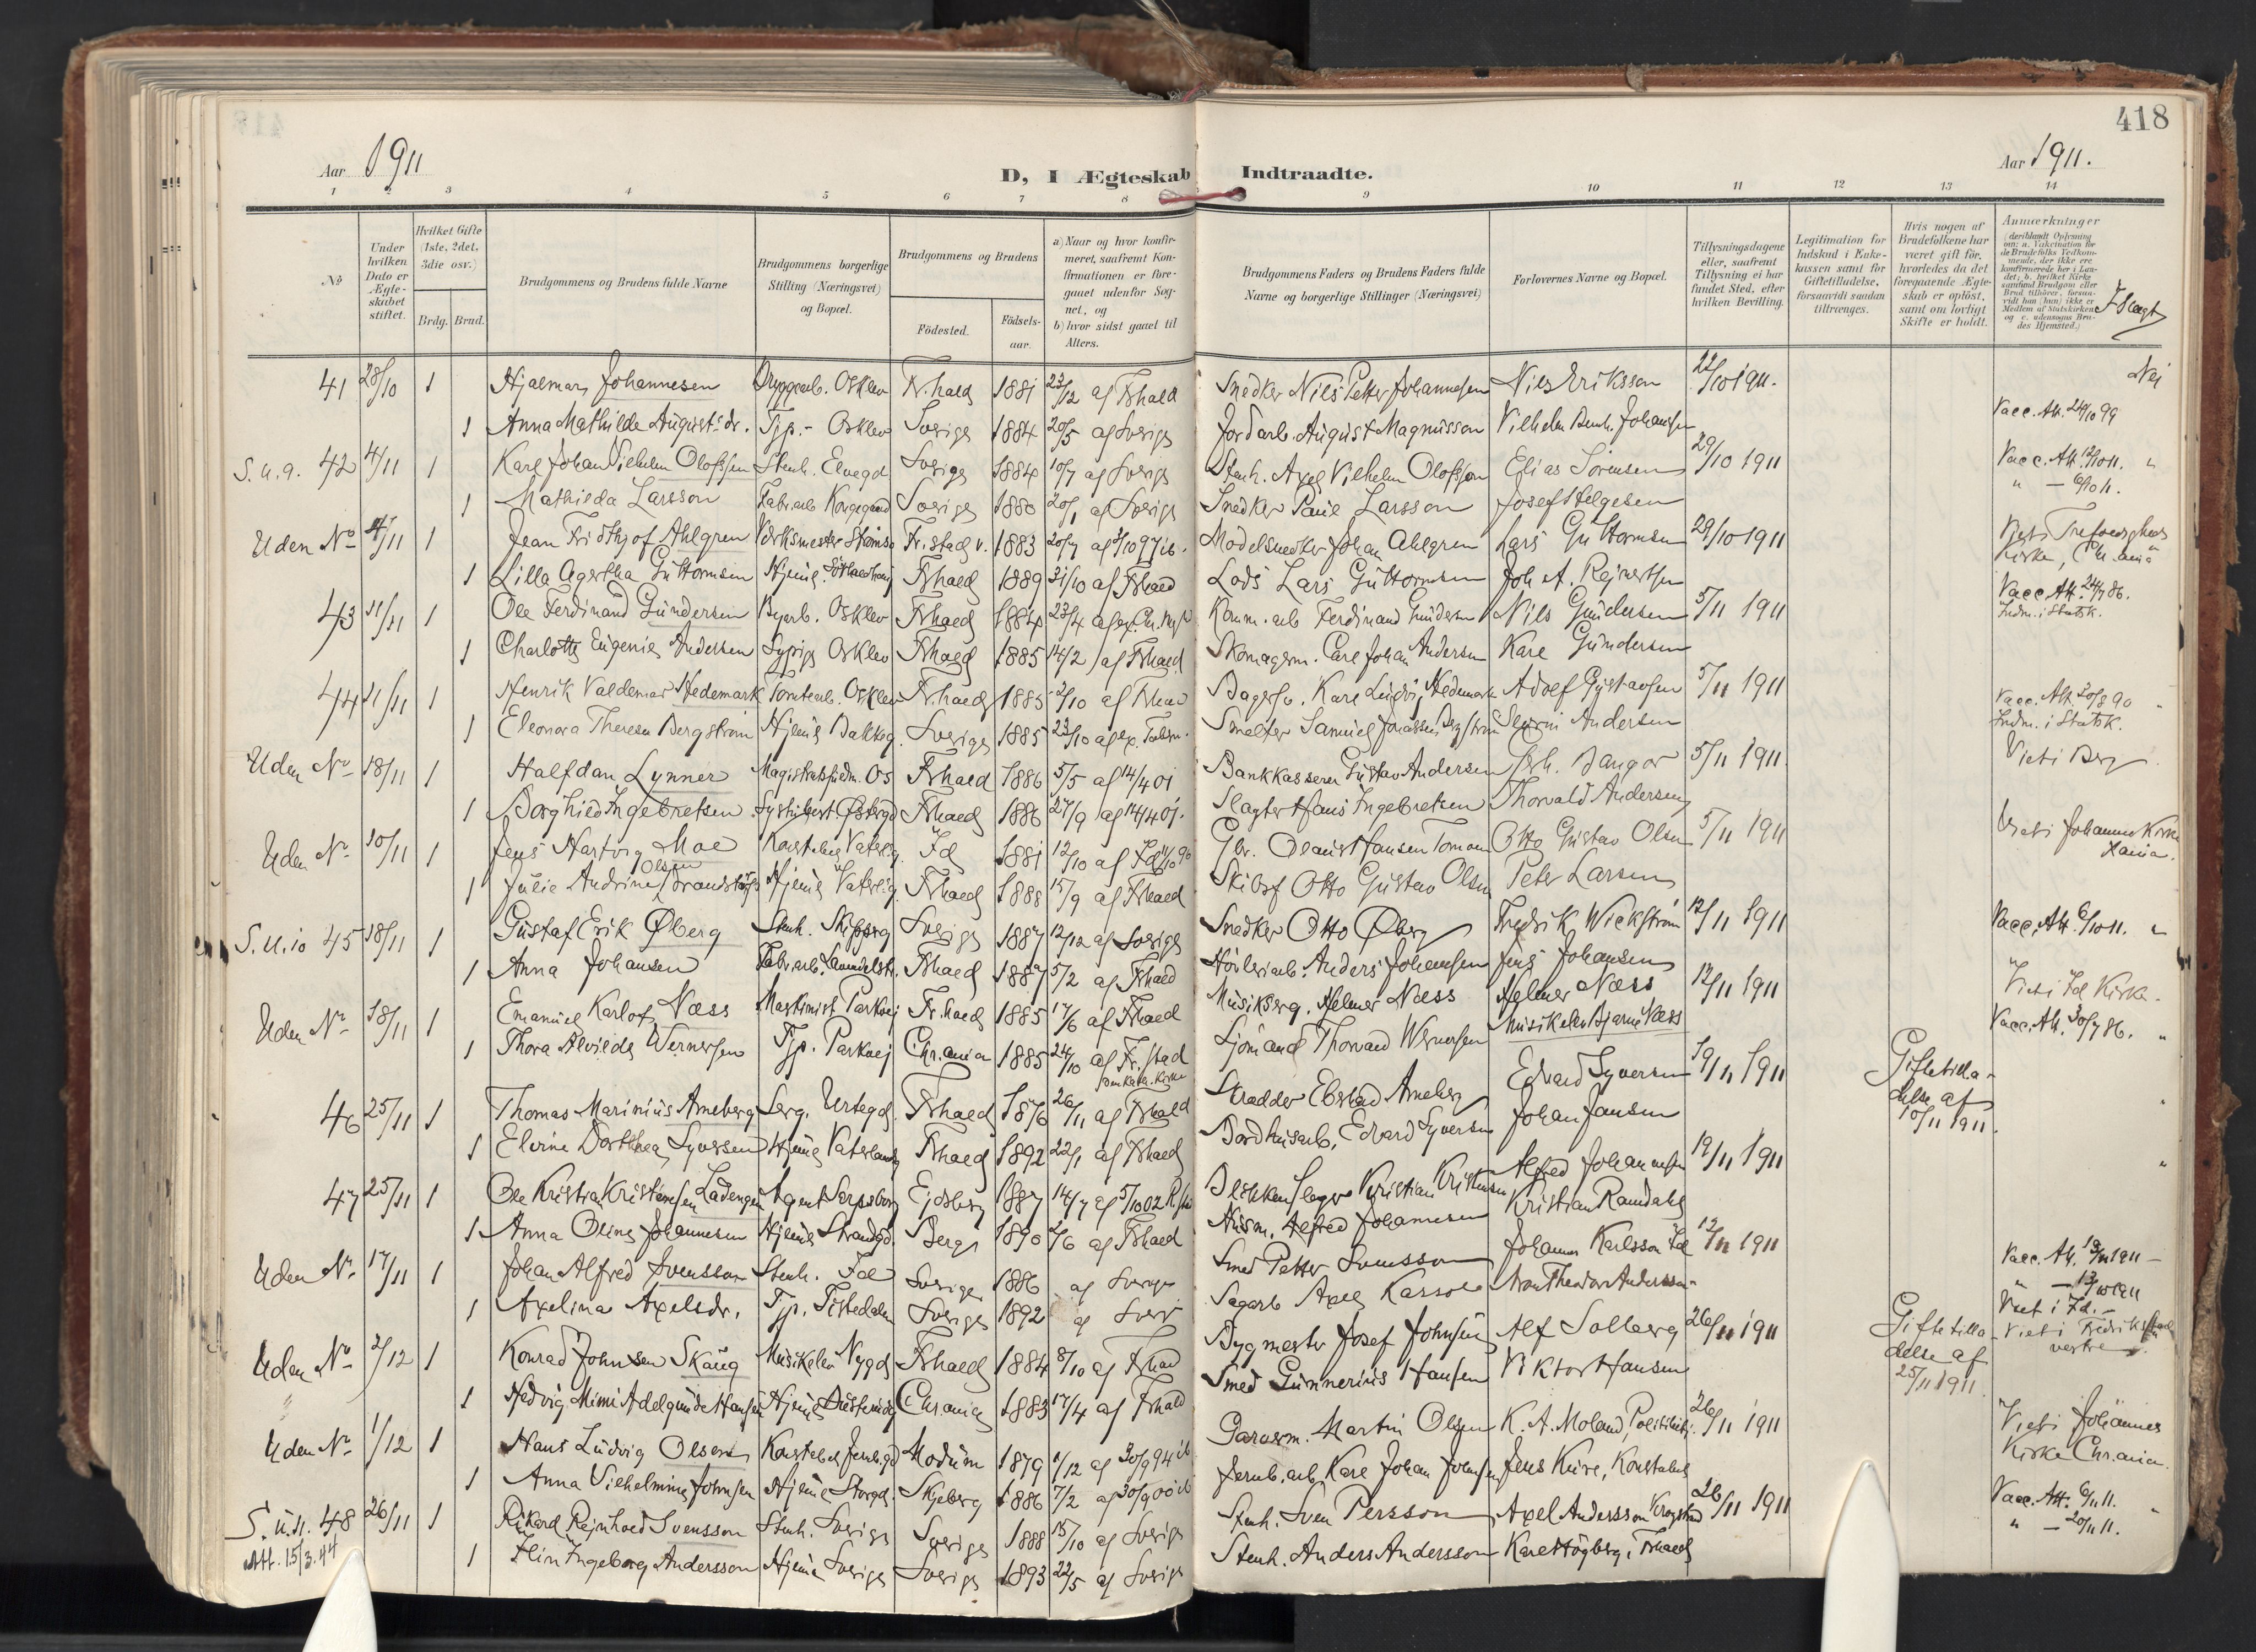 418
Aar 1911
D, I Ægteskab Indtraadte.
Aar 1911.
1 2 3 4 5 6 7 8 9 10 11 12 13 14
No
Under hvilken Dato er Ægteskabet stiftet.
Hvilket Gifte (1ste, 2det, 3die osv.)
Brdg. Brud.
Brudgommens og Brudens fulde Navne
Brudgommens borgerlige Stilling (Næringsvei) og Bopæl.
Brudgommens og Brudens
Fødested.
Fødselsaar.
a) Naar og hvor konfirmeret, saafremt Konfirmationen er foregaaet udenfor Sognet, og
b) hvor sidst gaaet til Alters.
Brudgommens Faders og Brudens Faders fulde Navne og borgerlige Stillinger (Næringsvei)
Forlovernes Navne og Bopæl.
Tillysningsdagene eller, saafremt Tillysning ei har fundet Sted, efter hvilken Bevilling.
Legitimation for Indskud i Enkekassen samt for Giftetilladelse, forsaavidt saadan tiltrænges.
Hvis nogen af Brudefolkene har været gift før, hvorledes da det foregaaende Ægteskab er opløst, samt om lovligt Skifte er holdt.
Anmærkninger
I Slægt
41 28/10 1 Hjalmar Johannesen Bryggearb. Osklev Fr.hald 1881 23/12 af Frhald Snedker Nils Petter Johannesen Nils Eriksson 22/10 1911. Nei
1 Anna Mathilde Augustsdr. Tjp. - Osklev Sverige 1884 20/5 af Sverige Jordarb. August Magnusson Vilhelm Johansen Vacc. Att. 24/10 99
S.u.9. 42 4/11 1 Karl Johan Vilhelm Olofsson Stenh. Elvegd Sverige 1884 10/7 af Sverige Stenh. Axel Vilhelm Olofsson Elias Sørensen 29/10 1911 Vacc. Att. 12/10 11. "
1 Mathilda Larsson Fabr.arb Kongegaard Sverige 1880 20/1 af Sverige Snedker Larsson Josef Helgesen " - 6/10 11.
Uden No 4/11 1 Jean Fridthjof Ahlgren Verksmester Fr.stad v. 1883 20/7 af 3/10 97 ib. Modelsnedker Johan Ahlgren Lars Guttormsen 29/10 1911 Viet i Trefoldigheds Kirke, Chr.ania
1 Lilla Agertha Guttormsen Hjeme Frhald 1889 31/10 af Frhald Lods Lars Guttormsen Joh. A. Rejnertsen
43 11/11 1 Ole Ferdinand Gundersen Byarb. Osklev Frhald 1884 23/4 Komm. arb Ferdinand Gundersen Nils Gundersen 5/11 1911 Vacc Att. 24/7 86. Indm. i Statsk.
1 Charlotte Eugenie Andersen Sypige Osklev Frhald 1885 14/2 af Frhald Skomagerm. Carl Johan Andersen Karl Gundersen
44 11/11 1 Henrik Valdemar Hedemark Tomtearb. Osklev Fr.hald 1885 2/10 af Frhald Bagersv. Karl Ludvig Hedemark Adolf Gustavsen 5/11 1911 Vacc. Att. 30/8 90 Indm. i Statsk.
1 Eleonora Theresa Bergstrøm Hjeme Bakkeg. Sverige 1885 23/10 Smelter Samuel Bergstrøm Andersen
Uden No 18/11 1 Halfdan Lynner Magistratsfuldm. Os Frhald 1886 5/5 af 14/4 01 Bankkasserer Gustav Andersen Bangor 5/11 1911. Viet i Berg
1 Borghild Ingebretsen Frhald 1886 27/9 af 14/4 01. Slagter Hans Ingebretsen Thorvald Andersen
Uden No 10/11 1 Jens Hartvig Moe Konstabel Vaterlg. Id 1881 12/10 af Id Hansen Otto Gustav Olsen 5/11 1911 Viet i Johannes Kirke Xania.
1 Julie Andrine Olsen Brandstorp Hjeme Vaterlg. Frhald 1888 15/9 af Frhald Skibsf Otto Gustav Olsen Peter Larsen
S.U.10 45 18/11 1 Gustaf Erik Øberg Stenh. Skipperg Sverige 1887 12/12 af Sverige Snedker Otto Øberg Fredrik Wickstrøm 12/11 1911 Vacc. Att. 6/10 11. "
1 Anna Johansen Fabr.arb. Frhald 1887 5/2 af Frhald Høvleriarb. Anders Johansen Jens Johansen
Uden No 18/11 1 Emanuel Karlot Næss Maskinist Parkvej Fr.hald 1885 17/6 af Frhald Musikserg. Helmer Næss Helmer Næss 12/11 1911 Viet i Id Kirke.
1 Thora Alvilde Wernersen Tjp. Parkvej Chr.ania 1885 24/10 af Fr.stad Sjømand Thorvald Wernersen Musikelev Bjarne Næss Vacc. Att. 30/7 86. "
46 25/11 1 Thomas Marinius Arneberg Serg. Urtegd. Frhald 1876 26/11 af Frhald Skrædder Arneberg Edvard Syversen 19/11 1911 Giftetilladelse af 10/11 1911.
1 Elvine Dorthea Syversen Hjeme Vaterland Frhald 1892 22/1 af Frhald Bordhusarb. Edvard Syversen Johan Jansen
47 25/11 1 Ole Kristian Kristensen Ladengen Agent Sarpsborg Ejdsberg 1887 14/7 af 5/10 02 Blikkenslager Kristian Kristensen Alfred Johannesen 19/11 1911
1 Anna Oline Johannesen Hjeme Strandgd. Berg 1890 2/6 af Frhald Alfred Johannesen Kristian Ramdahl
Uden No 17/11 1 Johan Alfred Svensson Stenh. Id Sverige 1886 af Sverige Smed Petter Svensson Johannes Karlsson Id 12/11 1911 Vacc. Att.
1 Axelina Axelsdr. Tjp. Tistedalen Sverige 1892 af Sver Sagarb Axel Theodor Andersson Viet i Id. -
Uden No 2/12 1 Konrad Johnsen Skaug Musikelev Nygd Frhald 1884 8/10 af Frhald Bygmester Josef Johnsen Alf Solberg 26/11 1911 Giftetilladelse af 25/11 1911. Viet i Fredrikstad vestre
1 Hedvig Mimi Adelgunde Hansen Hjeme Chr.ania 1883 17/4 af Frhald Smed Gunnerius Hansen Viktor Hansen
Uden No 1/12 1 Hans Ludvig Olsen Konstabel Jernb.gd Modum 1879 1/12 af 30/9 94 ib Garverm. Martin Olsen K. A. Moland, Politibetj. 26/11 1911 Viet i Johannes Kirke Chr.ania.
1 Anna Vilhelmine Johnsen Hjeme Storgd. Skjeberg 1886 7/2 af 30/9 00 ib Jernb.arb Karl Johan Johnsen Jens Kure, Konstabel
S.U.11. 48 26/11 1 Rikard Rejnhold Svensson Stenh. Sverige Sverige 1888 15/10 af Sverige Stenh. Sven Persson Axel Andersson Krogstad 26/11 1911 Vacc. Att. 6/11 11. "
Att. 15/3.44 1 Elin Ingeborg Andersson Hjeme Sverige Sverige 1893 22/5 af Sverige Stenh. Anders Andersson Karl Høgberg, Frhald " - 20/11 11.